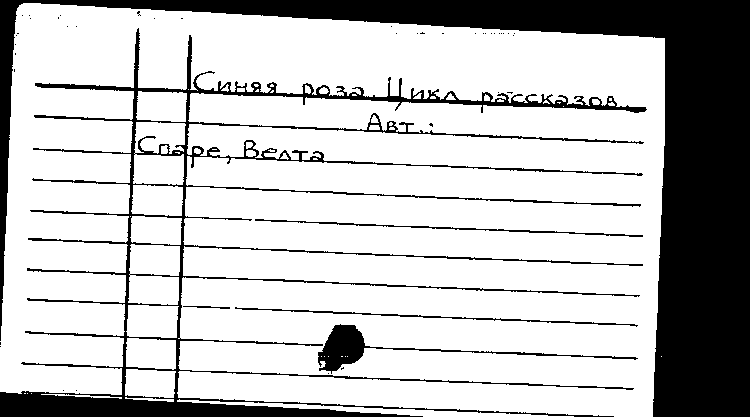 Синяя роза. Цикл рассказов.
Авт.:
Спаре, Велта